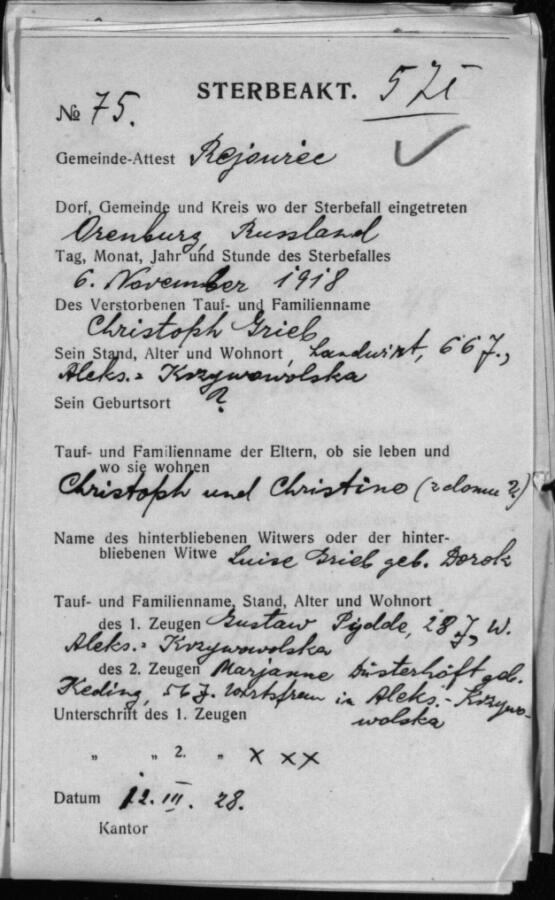 STERBEAKT. 525
№ 75.
Gemeinde-Attest Rejowiec
Dorf, Gemeinde und Kreis wo der Sterbefall eingetreten
Orenburg, Russland
Tag, Monat, Jahr und Stunde des Sterbefalles
6. November 1918
Des Verstorbenen Tauf- und Familienname
Christoph Grieb
Sein Stand, Alter und Wohnort, Landwirt, 66 J.,
Aleks.= Krzywowolska
Sein Geburtsort ?
Tauf- und Familienname der Eltern, ob sie leben und
wo sie wohnen
Christoph und Christine (z domu ?)
Name des hinterbliebenen Witwers oder der hinter-
bliebenen Witwe Luise Grieb geb. Dorok
Tauf- und Familienname, Stand, Alter und Wohnort
des 1. Zeugen Gustaw Pydde, 28 J, W.
Aleks.= Krzywowolska
des 2. Zeugen Marjanne Düsterhöft geb.
Keding, 56 J. Wirtsfrau in Aleks.- Krzywo-
wolska
Unterschrift des 1. Zeugen
„ „ 2. „ x xx
Datum 12. III. 28.
Kantor